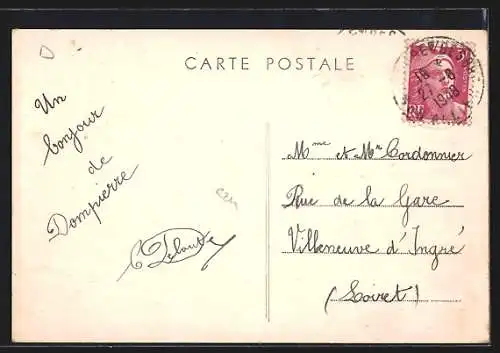 CARTE POSTALE
Un
bonjour
de
Dompierre
Mme et Mr Cordonnier
Rue de la Gare
Villeneuve d'Ingré
(Loiret)
18
27 -8
1948